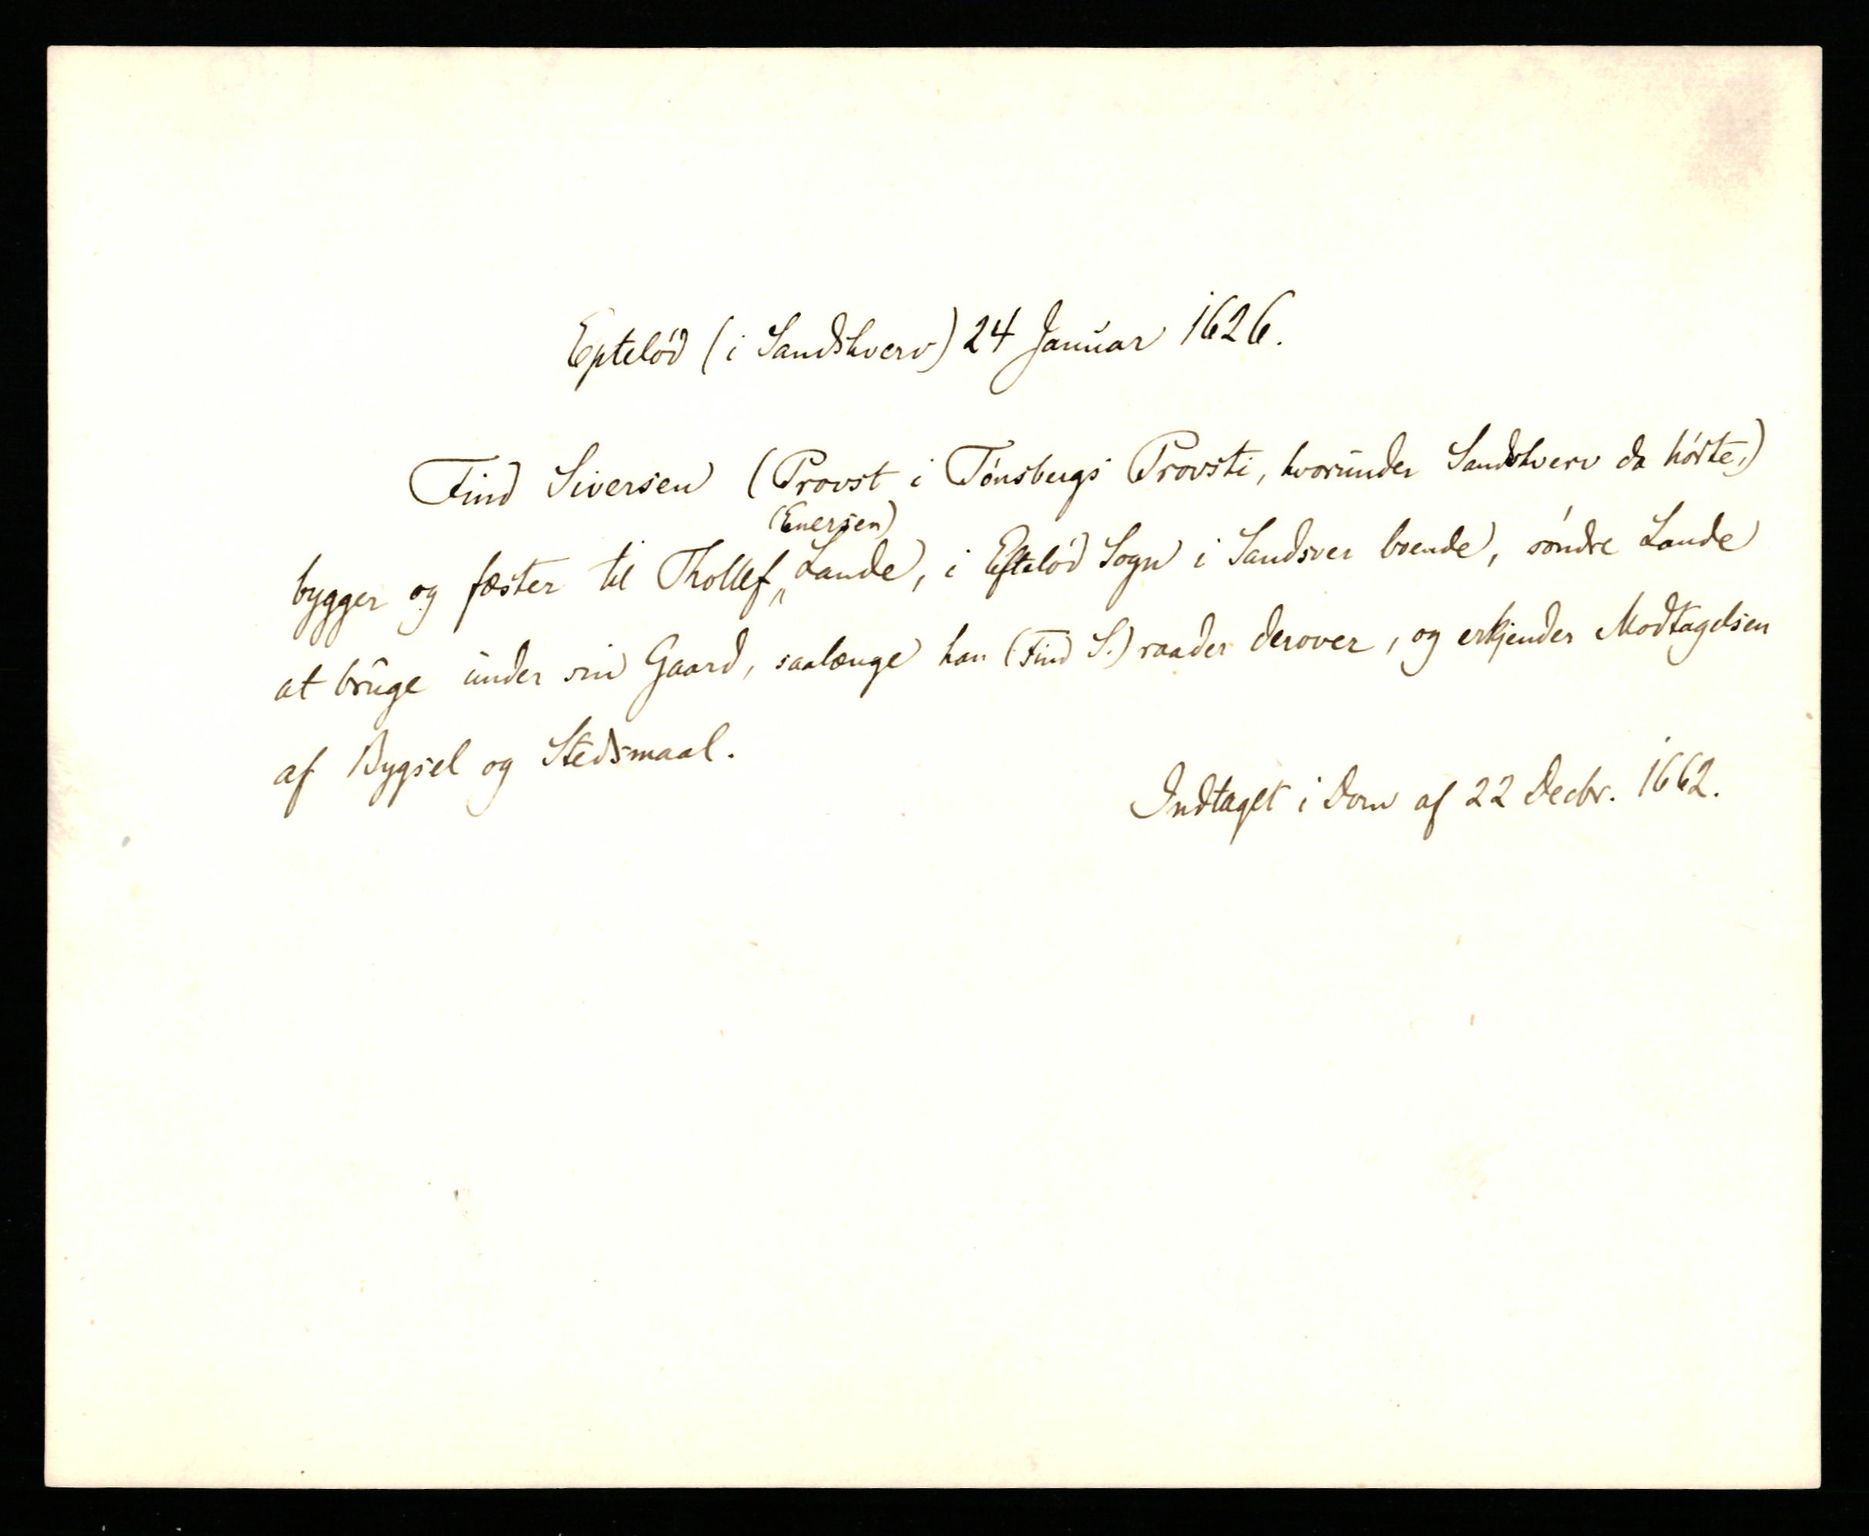 Epteløđ (i Sandshverv) 24 Januar 1626.
Find Siversen (Provst i Tønsbergs Provsti, hvorunder Sandshverv da hørte,)
(Enersen)
bygger og fæster til Thollef„ Lande, i Efteløđ Sogn i Sandsver boende, søndre Lande
at bruge under sin Gaard, saalænge han (Find S.) raader derover, og erkjender Modtagelsen
af Bygsel og Stedsmaal.
Indtaget i Dom af 22 Decbr. 1662.